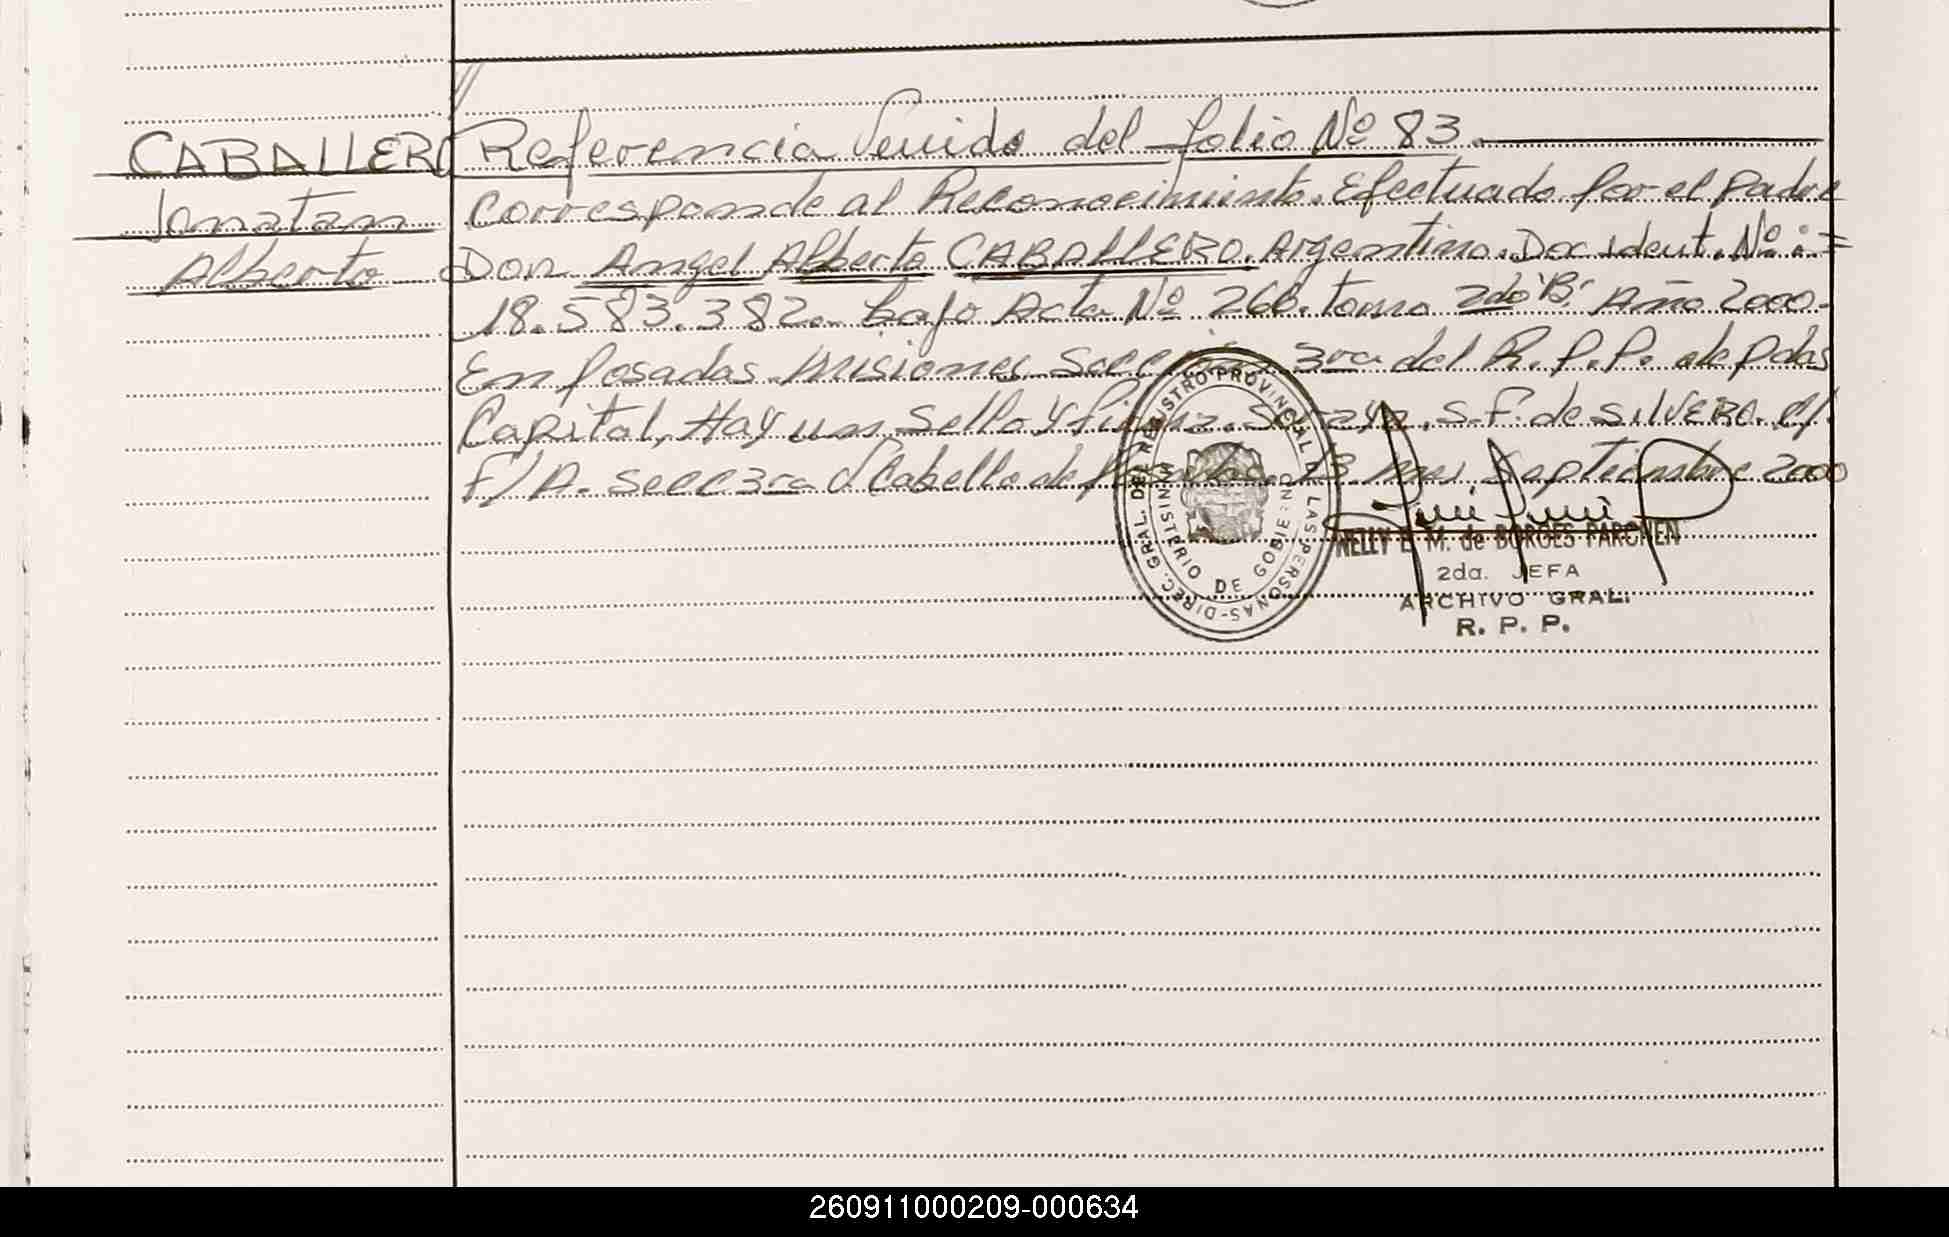 CABALLERO
Jonatan
Alberto
Referencia Venida del folio Nº 83.
Corresponde al Reconocimiento. Efectuado por el Padre
Don Angel Alberto CABALLERO. Argentino. Doc. ident. Nº :=
18.583.382. bajo Acta Nº 266. tomo 2do "B". Año 2000.
En Posadas Misiones Sección 3ra del R.P.P. de Pdas
Capital, Hay un Sello y firma. S.F. de SILVERO. C/.
F/A. Secc 3ra Cabello de 13 mes Septiembre 2000
DIREC. GRAL. DEL REGISTRO PROVINCIAL DE LAS PERSONAS
MINISTERIO DE GOBIERNO
NELLY E. M. de BORGES PARCHEN
2da. JEFA
ARCHIVO GRAL.
R. P. P.
260911000209-000634